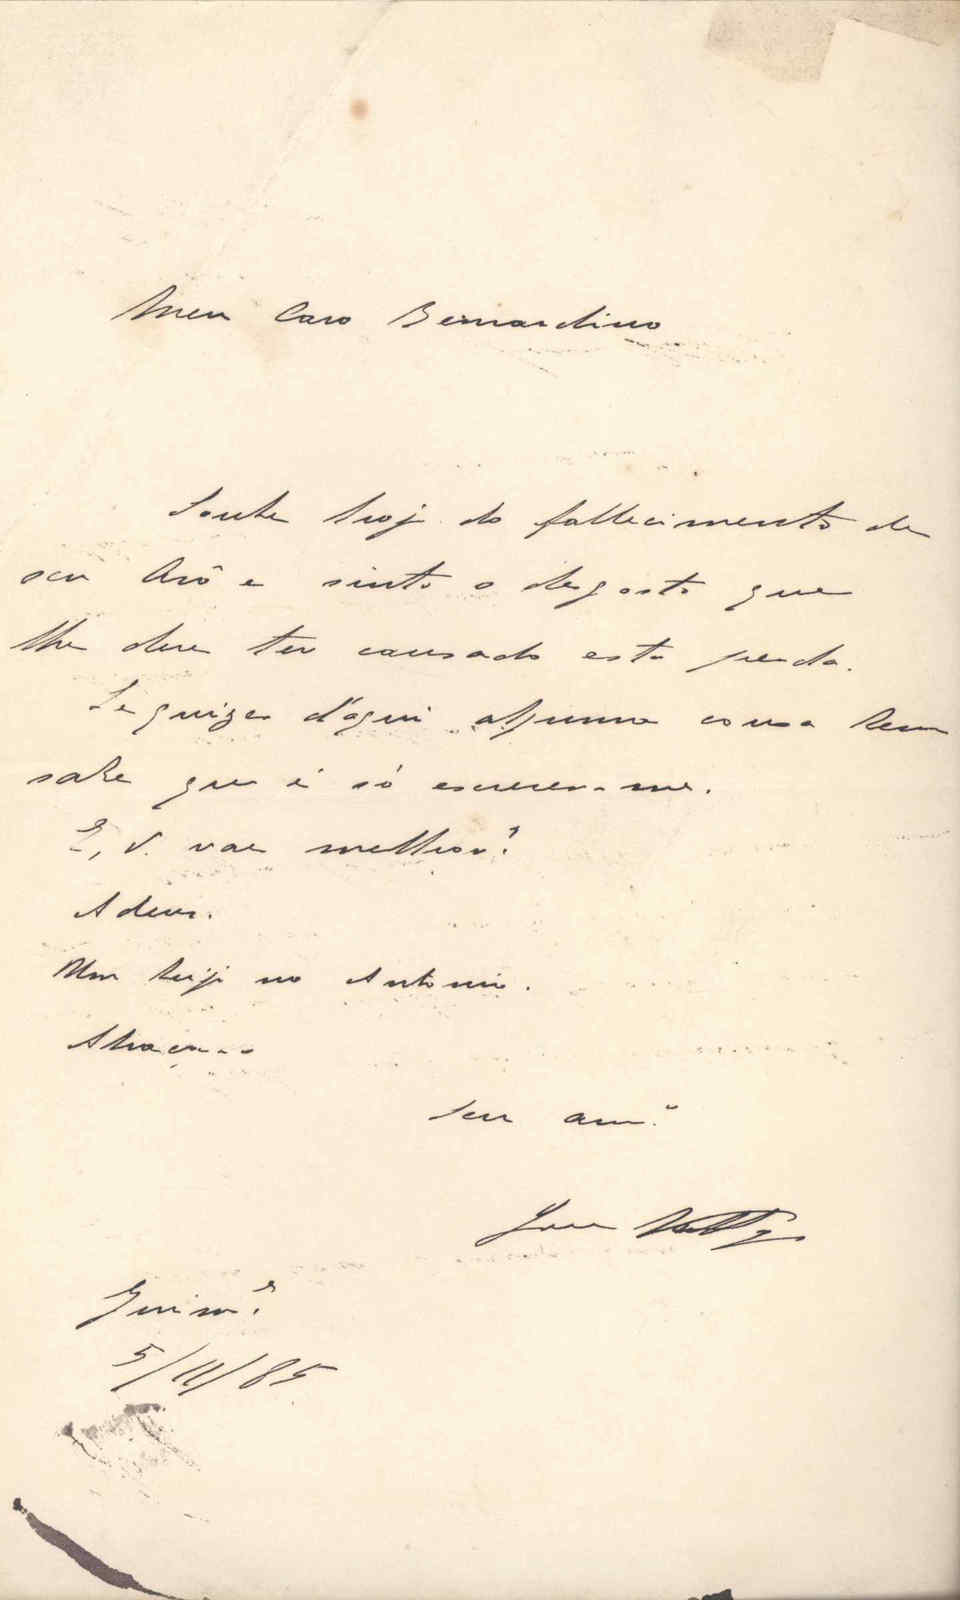 Meu Caro Bernardino
Soube hoj do fallecimento de
seu Avô e sinto o desgosto que
lhe deve ter causado esta perda.
Se quizer d'aqui alguma cousa bem
sabe que é só escrever-me.
E, V. vae melhor?
Adeus.
Um beijo no Antonio.
Abraça-o
Seu am.º
Guim.es
5/11/85